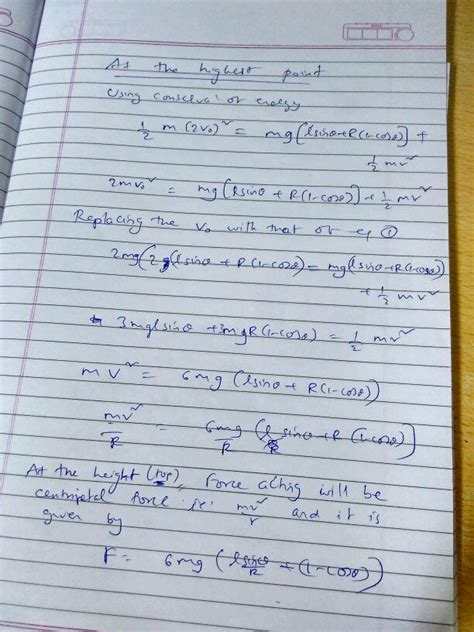 At the highest point
Using conserva' of energy
1/2 m (2v₀)² = mg[lsinθ+R(1-cosθ)] +
1/2 mv²
2mv₀² = mg[lsinθ + R(1-cosθ)] + 1/2 mv²
Replacing the v₀ with that of eq ①
2mg(2g(lsinθ + R(1-cosθ) = mg(lsinθ+R(1-cosθ)
+ 1/2 mv²
3mglsinθ + 3mgR(1-cosθ) = 1/2 mv²
mv² = 6mg (lsinθ + R(1-cosθ))
mv²/R = 6mg/R (l sinθ + R (1-cosθ))
At the height (top), Force acting will be
centripetal force ie: mv²/r and it is
given by
F = 6mg (lsinθ/R + (1-cosθ))